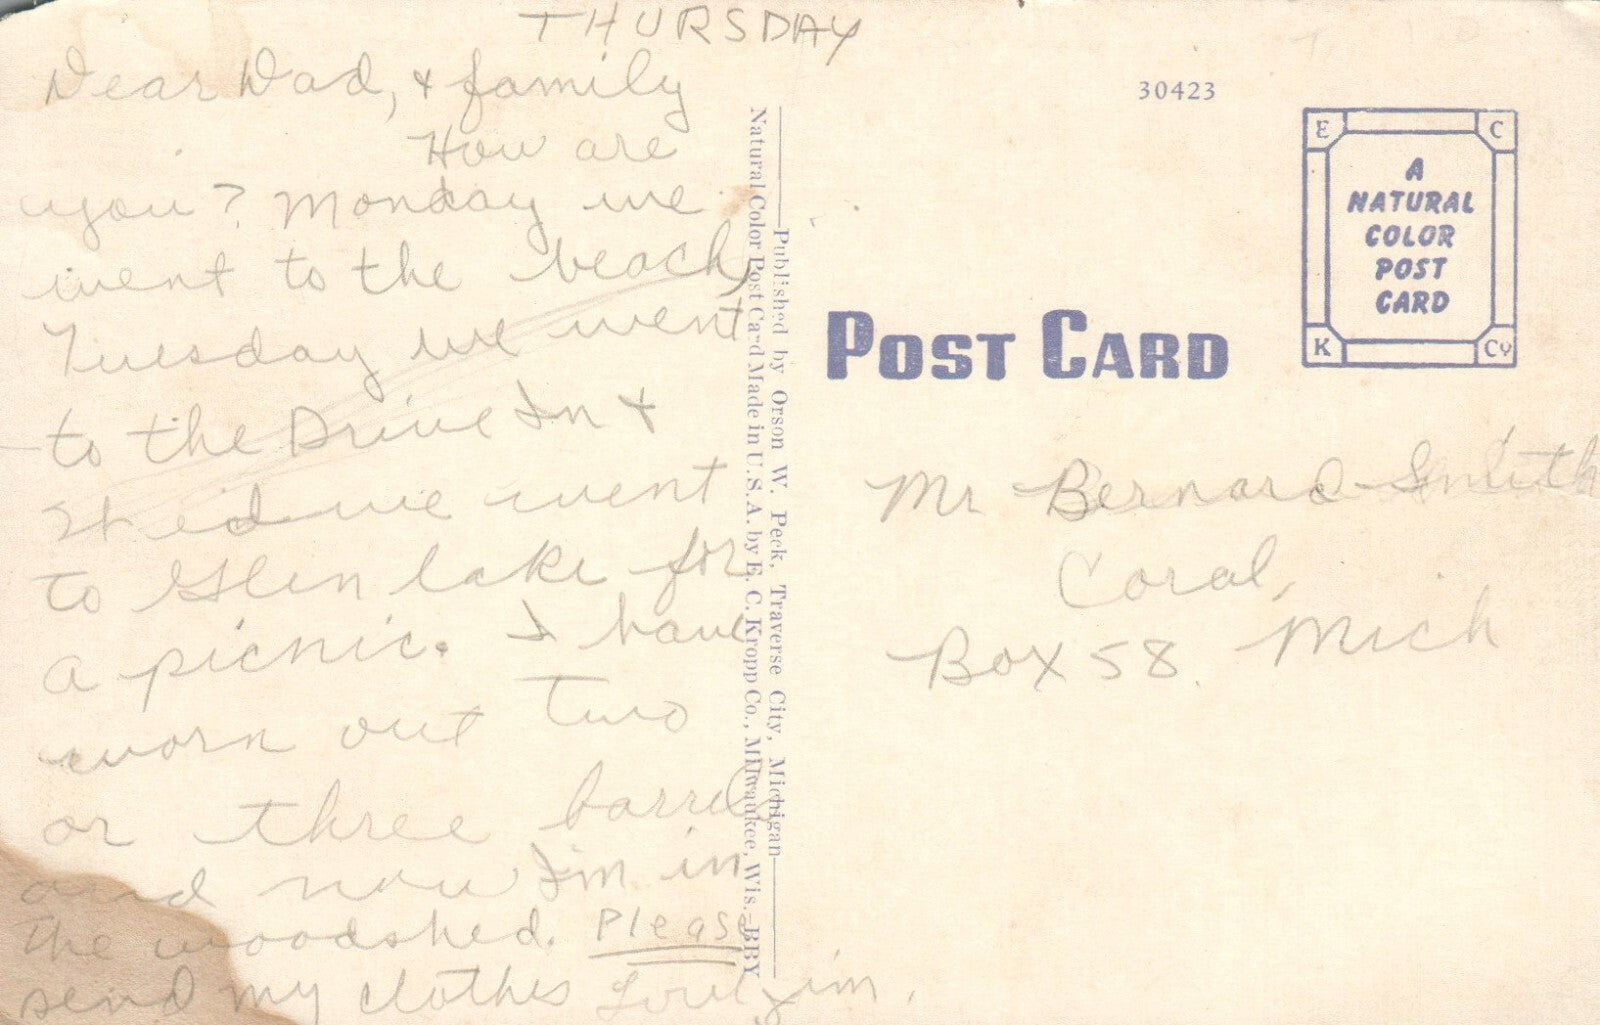 THURSDAY
Dear Dad, & family
How are
you? Monday we
went to the beach,
Tuesday we went
to the Drive In &
we went
to Glen lake for
a picnic. I have
worn out two
or three barrels
and now I'm in
the woodshed. Please
send my clothes Love Jim.
Published by Orson W. Peck, Traverse City, Michigan
Natural Color Post Card Made in U.S.A. by E. C. Kropp Co., Milwaukee, Wis.—BBY
30423
E C
A
NATURAL
COLOR
POST
CARD
K Cy
POST CARD
Mr Bernard Smith
Coral,
Box 58. Mich